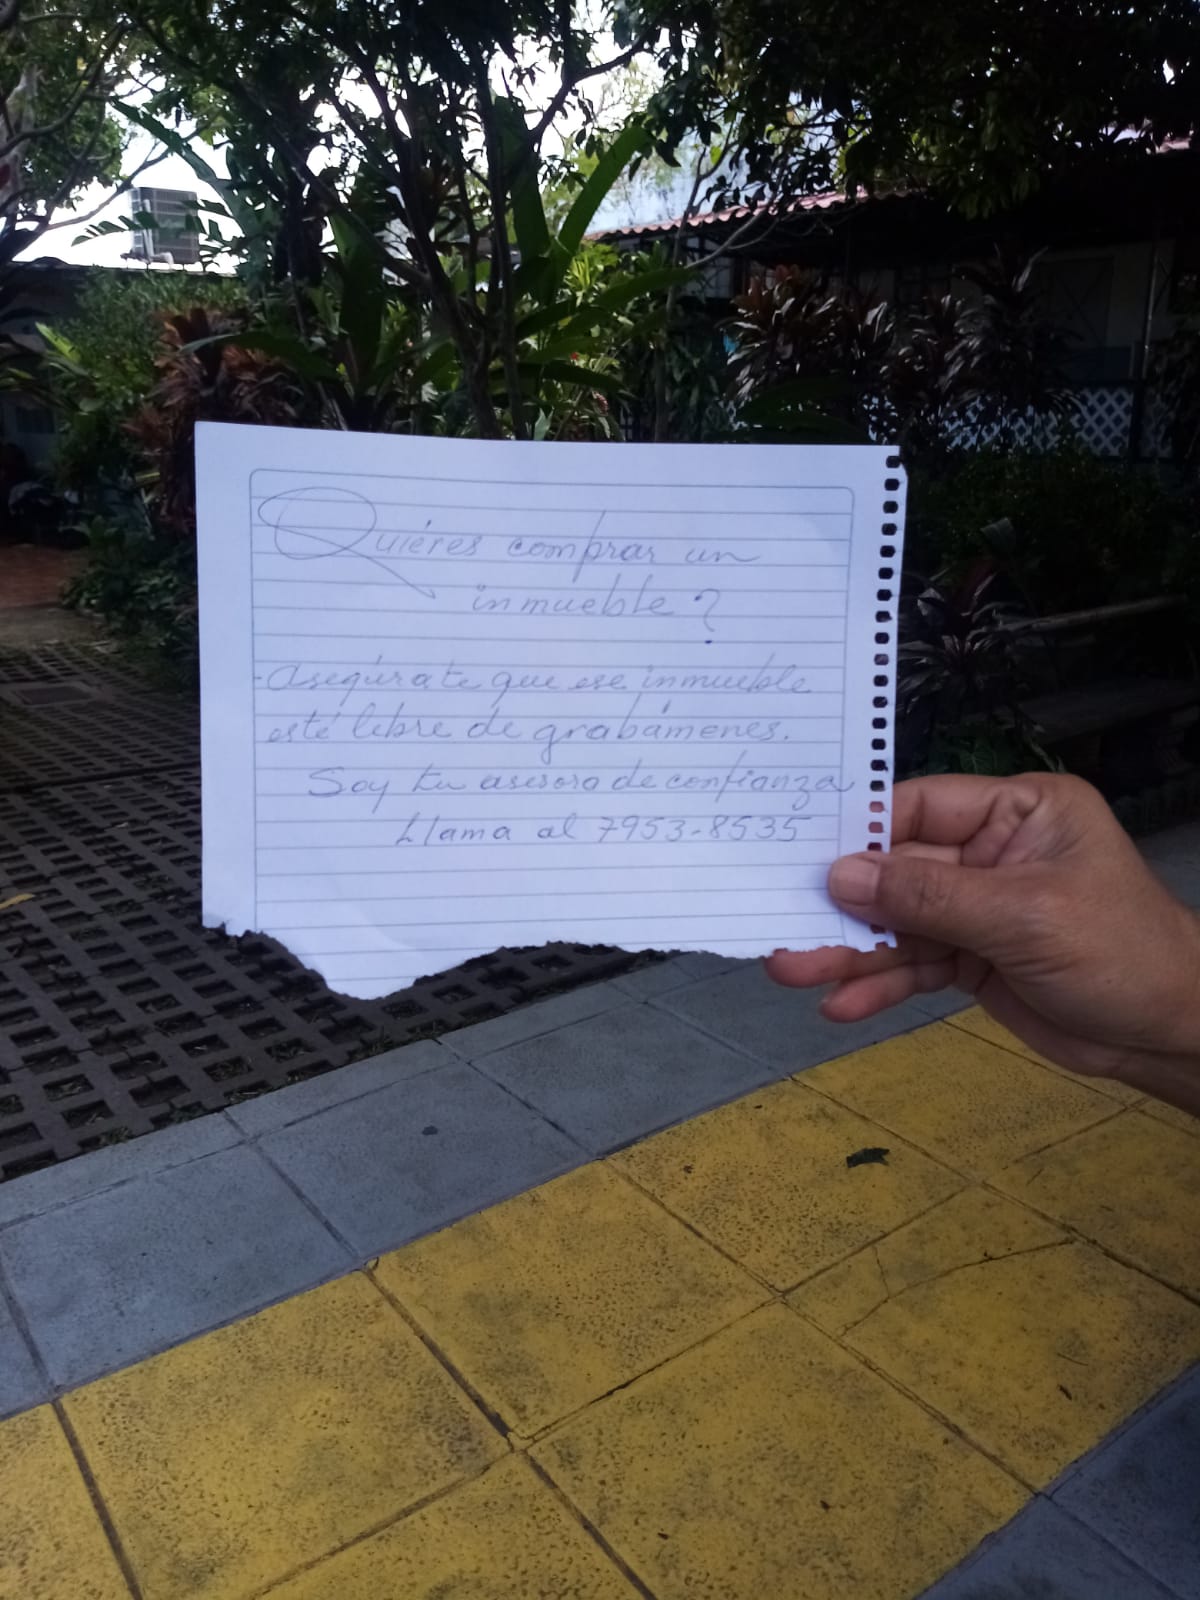 Quiéres comprar un
inmueble?
- Asegúrate que ese inmueble
esté libre de grabámenes.
Soy tu asesora de confianza
Llama al 7953-8535